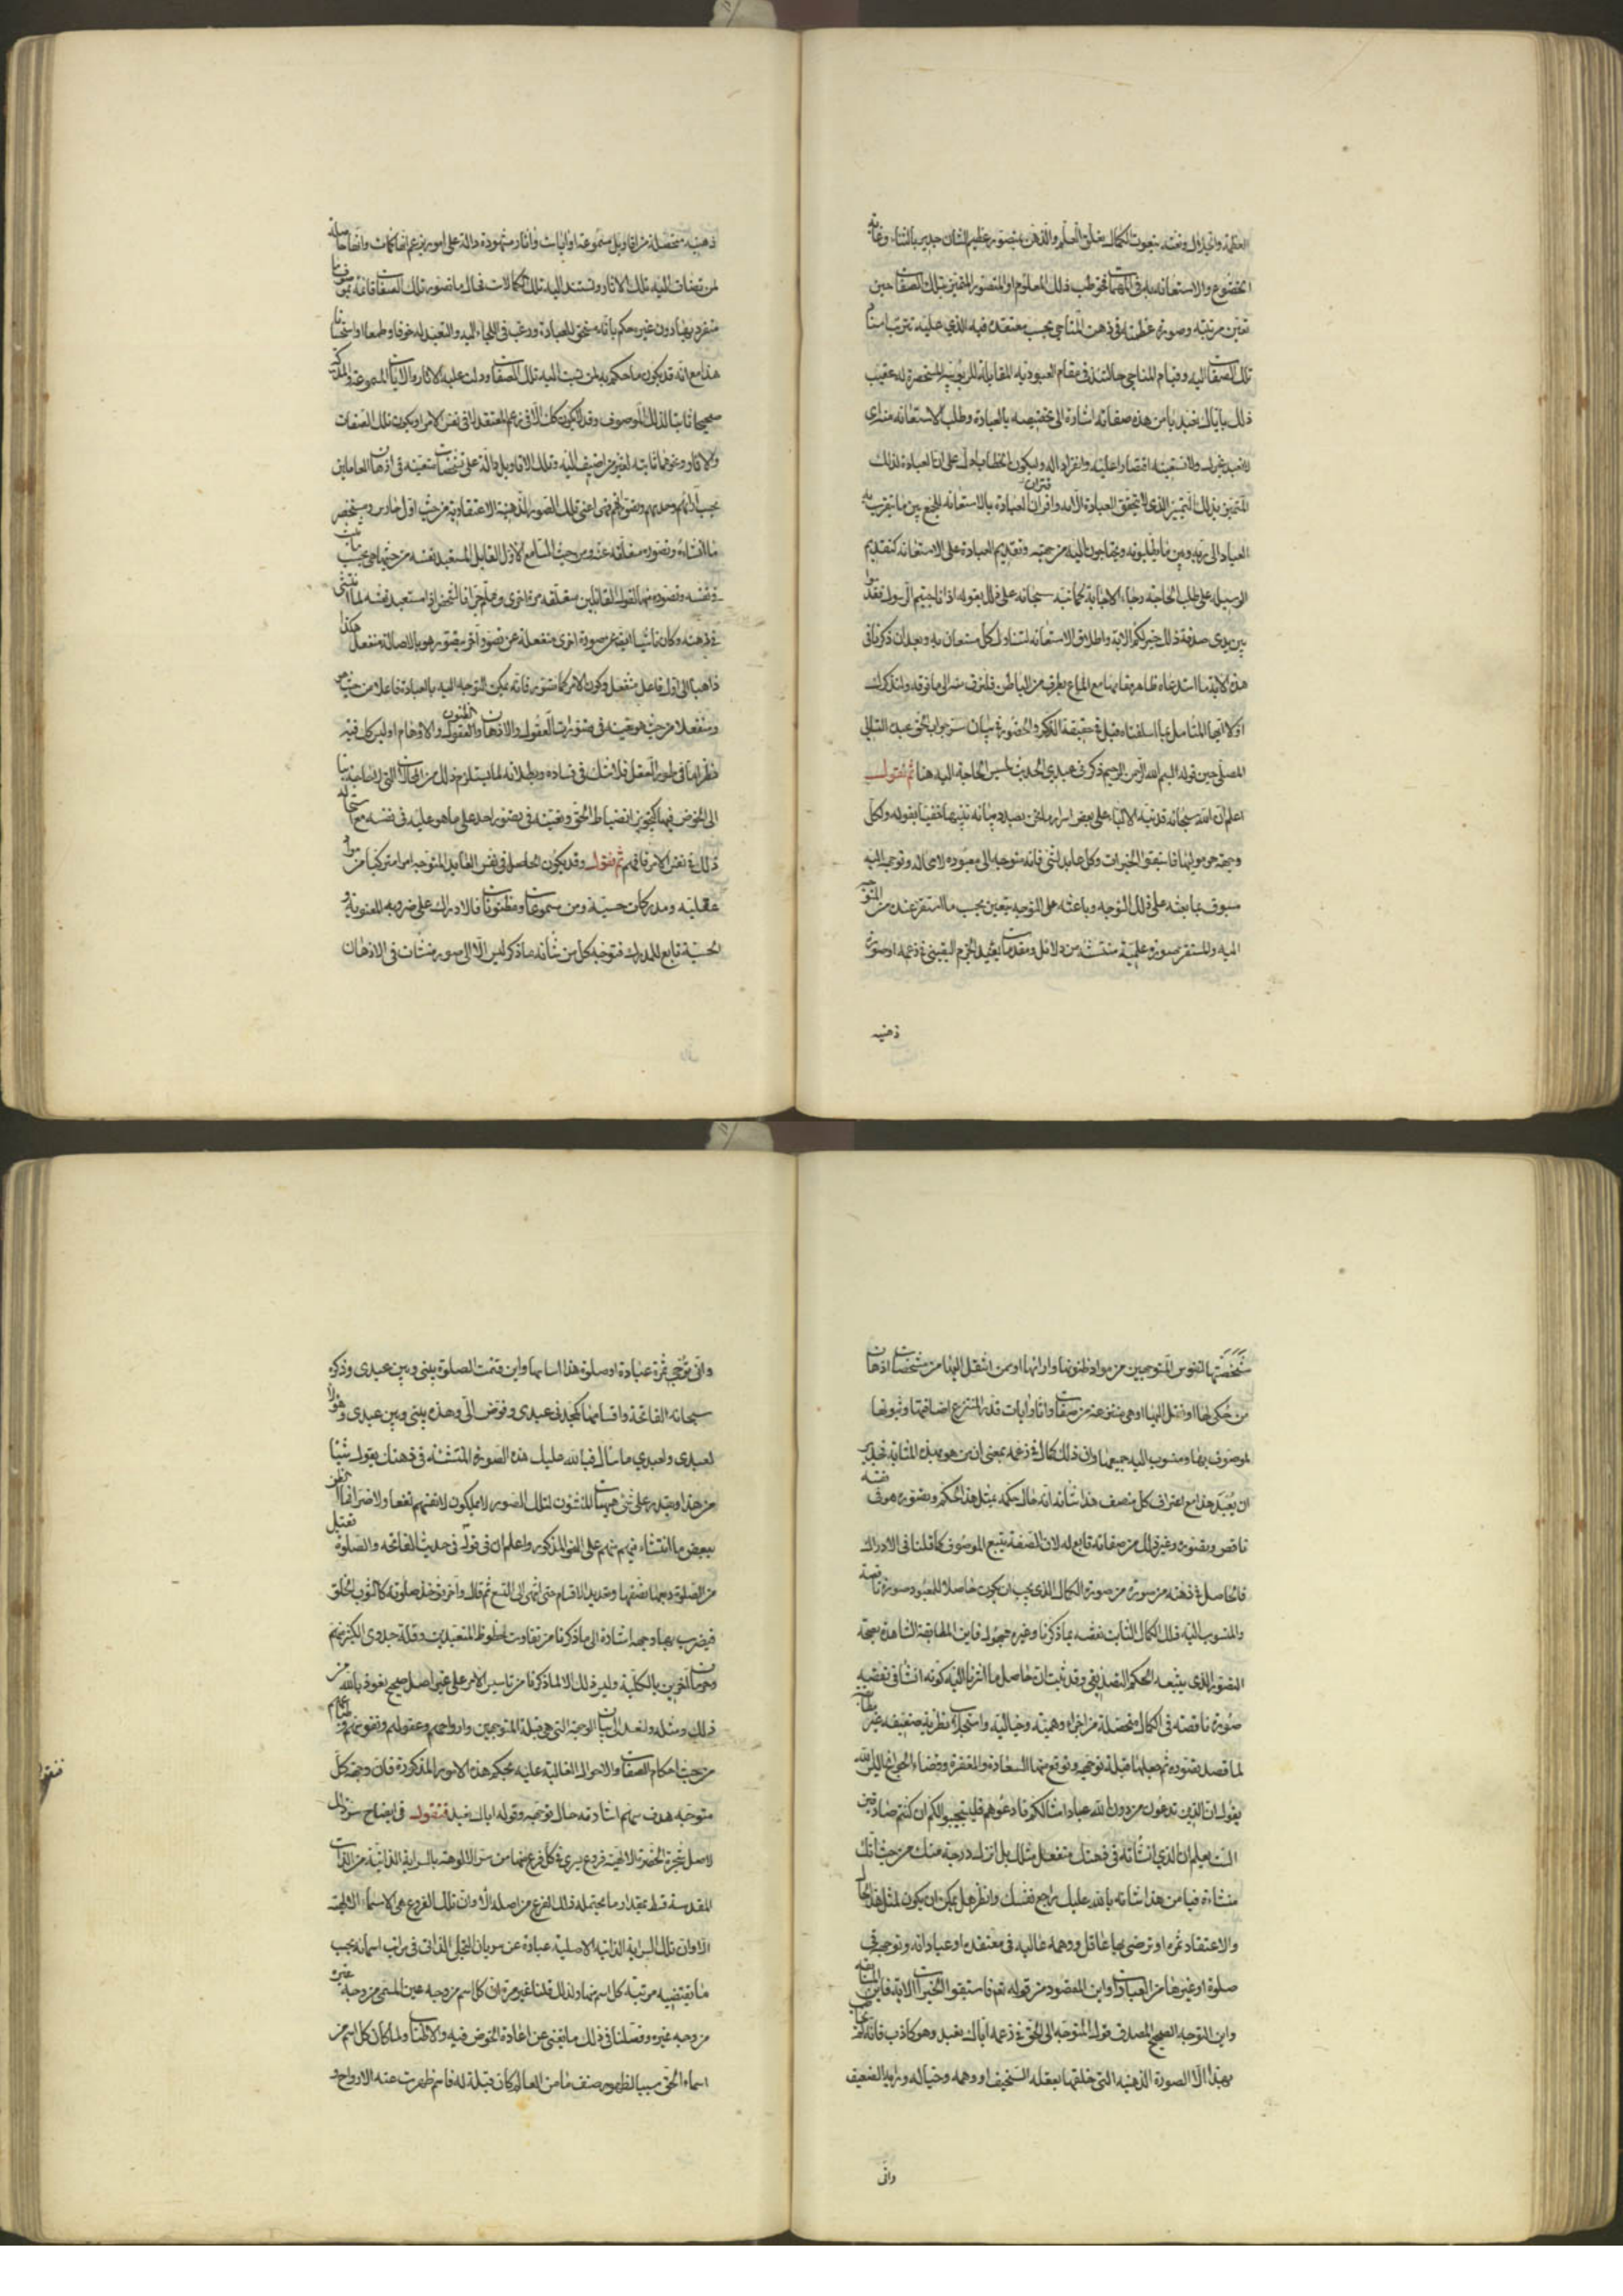 العظمة والجلال ونعته بنعوت الكمال يعلق العلم والذهن بمتصور عظيم الشان جدير بالثناء وغاية
الخضوع والاستعانة به في المهمات فخوطب ذلك المعلوم او المتصور المتميز بتلك الصفات حين
تعين مرتبته وصورة عظمته في ذهن المناجي بحسب معتقده فيه الذي عليه ترتب اسناد
تلك الصفات اليه وقيام المناجي حالتئذ في مقام العبودية المقابلة للربوبية المستحضرة له عقيب
ذلك باياك نعبد يا من هذه صفاته اشارة الى تخصيصه بالعبادة وطلب الاستعانة منه اي
لا نعبد غيرك ولا نستعينه اقتصارا عليه وانفرادا له وليكون الخطاب ادل على ان العبادة لذلك
المتميز بذلك التميز الذي لا يتحقق العبادة الا به واقتران العبادة بالاستعانة للجمع بين ما يتقرب به
العباد الى ربهم وبين ما يطلبونه ويحتاجون اليه من جهته وتقديم العبادة على الاستعانة كتقديم
الوسيلة على طلب الحاجة رجاء الاجابة كما نبه سبحانه على ذلك بقوله اذا ناجيتم الرسول فقدموا
بين يدي صدقة ذلك خير لكم الاية واطلاق الاستعانة لتتناول كل مستعان به وبعد ان ذكرنا في
هذه الاية ما استدعاه ظاهر مقامها مع الماع بطرف من الباطن فلنرق منه الى ما فوقه ولنذكرك
اولا ايها المتامل بما اسلفناه قبل في حقيقة الذكر والحضور في بيان سر جواب الحق عبده التالي
المصلي حين قوله بسم الله الرحمن الرحيم ذكرني عبدي الحديث لمسيس الحاجة اليه هنا ثم نقول
اعلم ان الله سبحانه قد نبه الالباء على بعض اسرار ما نحن بصدد بيانه تنبيها خفيا بقوله ولكل
وجهة هو موليها فاستبقوا الخيرات وكل عابد لشئ فانه متوجه الى معبوده لا محالة وتوجهه اليه
مسبوق بباعثه على ذلك التوجه وباعثه على التوجه يتعين بحسب ما استقر عنده من المتوجه
اليه والمستقر صورة علمية منتشئة من دلائل ومقدمات يفيد الجزم اليقيني في زعمه او صورة
ذهنية
ذهنية متحصلة من اقاويل مسموعة او ايات واثار مشهودة دالة على امور يزعم انها كمالات وانها حاصلة
لمن تضاف اليه تلك الاثار وتستند اليه تلك الكمالات فحال ما تصور تلك الصفات قائمة بموصوف ما
منفرد بها دون غيره حكم بانه مستحق للعبادة ورغب في اللجاء اليه والتعبد له خوفا وطمعا او استحسانا
هذا مع انه قد يكون ما حكم به لمن نسبت اليه تلك الصفات ودلت عليه الاثار والايات المسموعة والمدركة
صحيحا ثابتا لذلك الموصوف وقد لا يكون كذلك الا في زعم المعتقد لا في نفس الامر او يكون تلك الصفات
والاثار ونحوهما ثابتة لغير من اضيفت اليه وتلك الاقاويل دالة على تشخصات متعينة في اذهان القائلين
بحسب ارائهم وحدسهم وتصوراتهم فهي اعني تلك الصور الذهنية الاعتقادية من حيث اول حادس ومستحضر
ما انشاءه وتصوره منفعلة عنه ومن حيث السامع لاول القائل المستعبد نفسه من حيثها هي بحسب ما ينشئ
في نفسه وتصوره منها لقول القائلين منفعلة مرة اخرى وهلم جرا فالشخص اذا مستعبد نفسه لما انتشى
في ذهنه وكان ناشئا ايضا عن صورة اخرى منفعلة عن تصور اخر متصور هو بالاصالة منفعل هكذا
ذاهبا الى اول فاعل منفعل ولكون الامر كما ستوضح فانه يمكن التوجه اليه بالعبادة فاعلا من حيث هو
ومنفعلا من حيث هو تعينه في متصورات العقول والاذهان والظنون والاوهام او ليس كل فيه
نظر اما في طور العقل فلا شك في فساده وبطلانه لما يستلزم ذلك من المحالات التي لا حاجة بنا
الى الخوض فيها كتجويز انضباط الحق وتعينه في تصور احد على ما هو عليه في نفسه مع استحالة
ذلك في نفس الامر فافهم ثم نقول وقد يكون الحاصل في نفس العابد المتوجه امرا متركبا من مواد
عقلية ومدركات حسية ومن مسموعات ومظنونات فالادراك على ضروبه المعنوية و
الحسية تابع للمدرك فتوجه كل من شانه ما ذكر ليس الا الى صور منشات في الاذهان
شخصتها نفوس المتوجهين من مواد ظنونها وارائها او ممن انتقل اليها من مشخصات اذهان
من حكى لها او نقل اليها او هي منتزعة من صفات واثار وايات قد قرر المنتزع اضافتها وثبوتها
لموصوف بها ومنسوب اليه جميعها وان ذلك كمال في زعمه بمعنى ان من هو بهذه المثابة فجدير
ان يعبد هذا مع اعتراف كل منصف هذا شانه انه حال حكمه بمثل هذا الحكم وتصوره هو في نفسه
ناقص وتصوره وغير ذلك من صفاته تابع له لان الصفة يتبع الموصوف كما قلنا في الادراك
فالحاصل في ذهنه من صورة من صورة الكمال الذي يجب ان يكون حاصلا للمعبود صورة ناقصة
والمنسوب اليه ذلك الكمال الثابت نقصه بما ذكرنا وغيره مجهول فاين المطابقة الشاهدة بصحة
التصور الذي يتبعه الحكم التصديقي وقد ثبت ان حاصل ما اشرنا اليه كونه انشأ في نفسه
صورة ناقصة في الكمال متحصلة من اجزاء وهمية وخيالية واستجلابات نظرية ضعيفة غير مطابقة
لما قصد تصوره ثم جعلها قبلة توجهه ويتوقع منها السعادة والمغفرة وقضاء الحوائج اليس الله
يقول ان الذين تدعون من دون الله عباد امثالكم فادعوهم فليستجيبوا لكم ان كنتم صادقين
الست تعلم ان الذي انشأته في ذهنك منفعل مثلك بل انزل درجة منك من حيث انك
منشئه فيا من هذا شانه بالله عليك راجع نفسك وانظر هل يمكن ان يكون لمثل هذا الحال
والاعتقاد ثمرة او ترضى بها عاقل ذو همة عالية في معتقده او عباداته وتوجهه في
صلوة او غيرها من العبادات واين المقصود من قوله تعالى فاستبقوا الخيرات الاية فاين المسابقة
واين التوجه الصحيح المصدق قول المتوجه الى الحق في زعمه اياك نعبد وهو كاذب فانه لم يخاطب
بهذا الا الصورة الذهنية التي خلقها بعقله السخيف او وهمه وخياله ورايه الضعيف
واني
واني ترجى ثمرة عبادة او صلوة هذا اساسها واين قسمت الصلوة بيني وبين عبدي وذكره
سبحانه الفاتحة واقسامها كمجدني عبدي وفوض الي وهذه بيني وبين عبدي وهؤلاء
لعبدي ولعبدي ما سأل فبالله عليك هذه الصورة المنتشئة في ذهنك يقول شيئا
من هذا او يقدر على شئ هيهات المنشؤون لتلك الصور لا يملكون لانفسهم نفعا ولا ضرا فما الظن
ببعض ما انتشاء منهم فيهم على النحو المذكور واعلم ان في قوله في حديث الفاتحة والصلوة فتقبل
من الصلوة ربعها نصفها وتعديد الاقسام حتى انتهى الى التسع ثم قال واخر تؤخذ صلوته كالثوب الخلق
فيضرب بها وجهه اشارة الى ما ذكرنا من تفاوت حظوظ المتعبدين وقلة جدوى اكثر منهم
وحرمان اخرين بالكلية وليس ذلك الا لما ذكرنا من تاسيس الامر على غير اصل صحيح نعوذ بالله من
ذلك ومثله ولنعد الى بيان الوجهة التي هي قبلة المتوجهين وارواحهم وعقولهم ونفوسهم وطبائعهم
من حيث احكام الصفات والاحوال الغالبة عليه بحكم هذه الامور المذكورة فان وجهة كل
متوجه هدف سهم اشارته حال توجهه وقوله اياك نعبد فنقول في ايضاح سر ذلك
لاصل شجرة الحضرة الالهية فروع يسري في كل فرع منها من سر الالوهية بالسراية الذاتية من الذات
المقدسة قسط بمقدار ما يحتمله ذلك الفرع من اصله الا وان تلك الفروع هي الاسماء الالهية
الا وان تلك السراية الذاتية الاصلية عبارة عن سريان التجلي الذاتي في مراتب اسمائه بحسب
ما تقتضيه مرتبة كل اسم منها ولذلك قلنا غير مرة ان كل اسم من وجه عين المسمى من وجه غيره
من وجه غيره وفصلنا في ذلك ما يغني عن اعادة الخوض فيه والا قلنا ولما كان كل اسم من
اسماء الحق سببا لظهور صنف ما من العالم كان قبلة له فاسم ظهرت عنه الارواح و